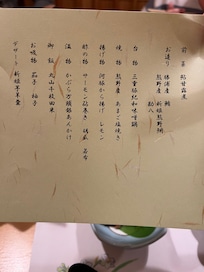 前菜 鮎甘露煮
お造り 勝浦産 鮪
熊野産 新姫熊野鯛
助八
台物 三重豚紀和味噌鍋
焼物 熊野産 あまご塩焼き
揚げ物 河豚から揚げ レモン
酢の物 サーモン砧巻き
温物 かぶら万頭銀あんかけ
御飯 丸山千枚田米
お吸物 茄子 柚子
デザート 新姫羊羹